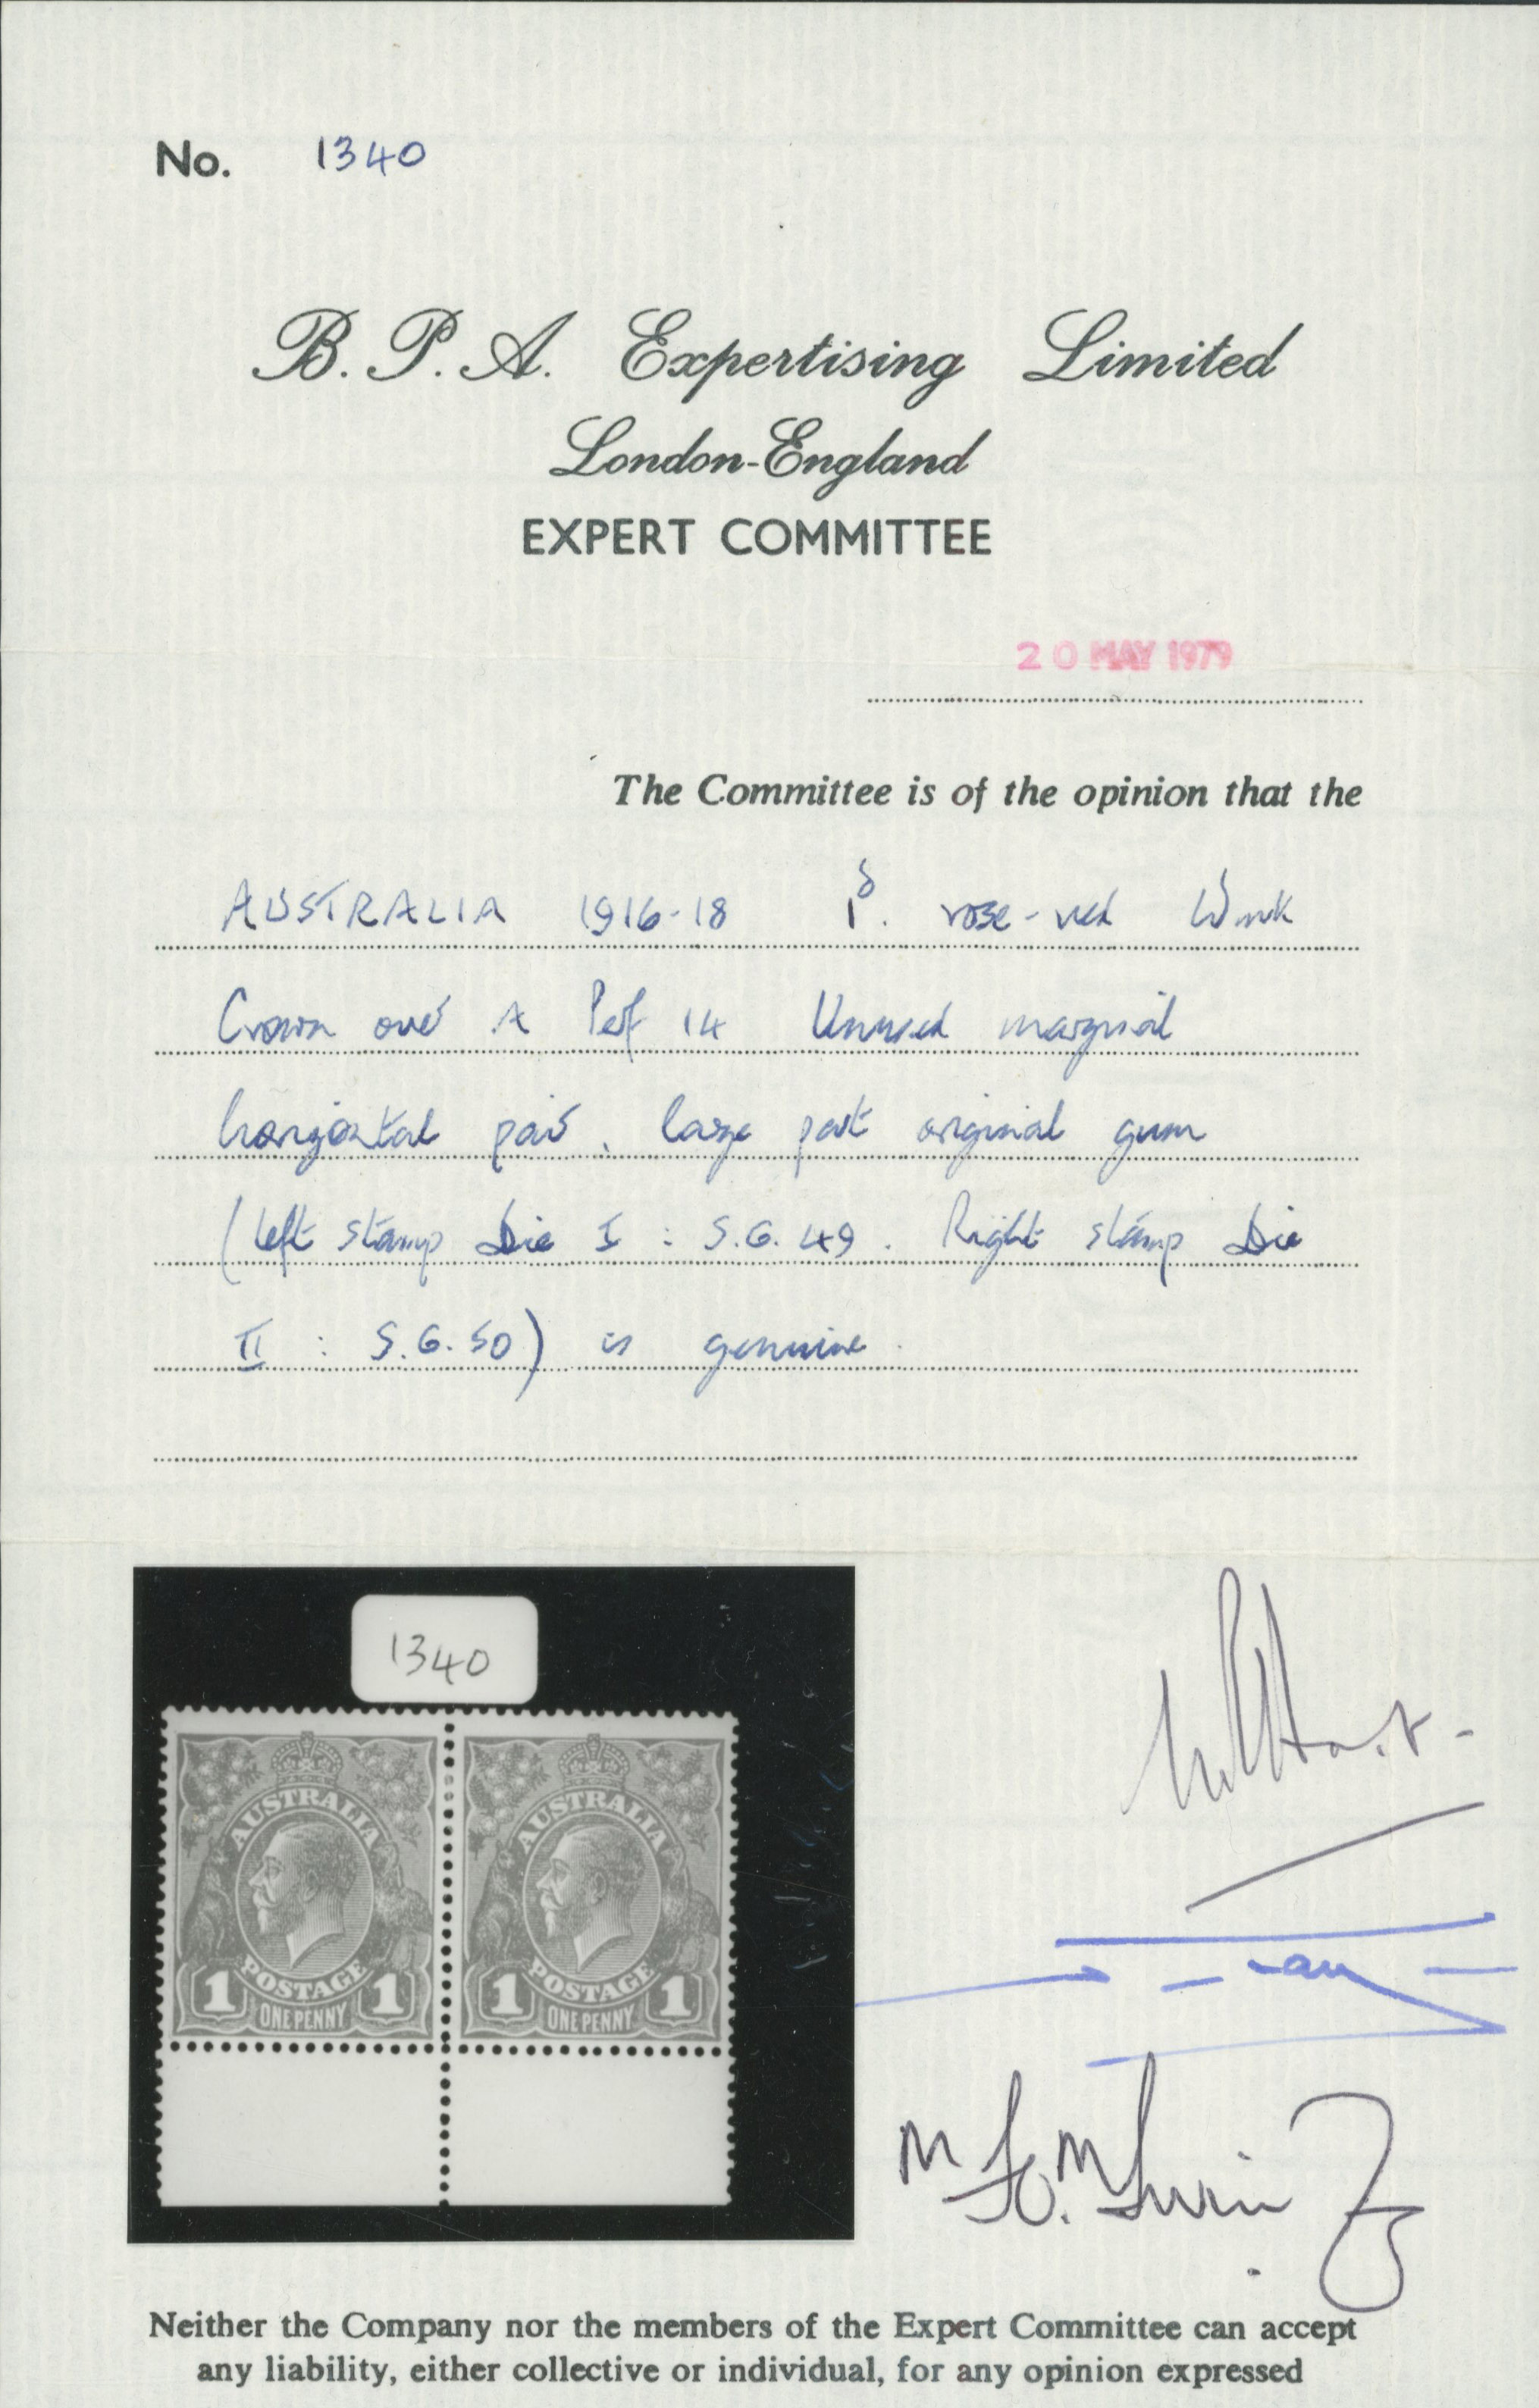 No. 1340
B. P. A. Expertising Limited
London-England
EXPERT COMMITTEE
20 MAY 1979
The Committee is of the opinion that the
AUSTRALIA 1916-18 1d. rose-red Wmk
Crown over A Perf 14 Unused marginal
horizontal pair, large part original gum
(left stamp Die I : S.G. 49. Right stamp Die
II : S.G. 50) is genuine.
1340
AUSTRALIA AUSTRALIA
POSTAGE POSTAGE
1 1 1 1
ONE PENNY ONE PENNY
Neither the Company nor the members of the Expert Committee can accept
any liability, either collective or individual, for any opinion expressed